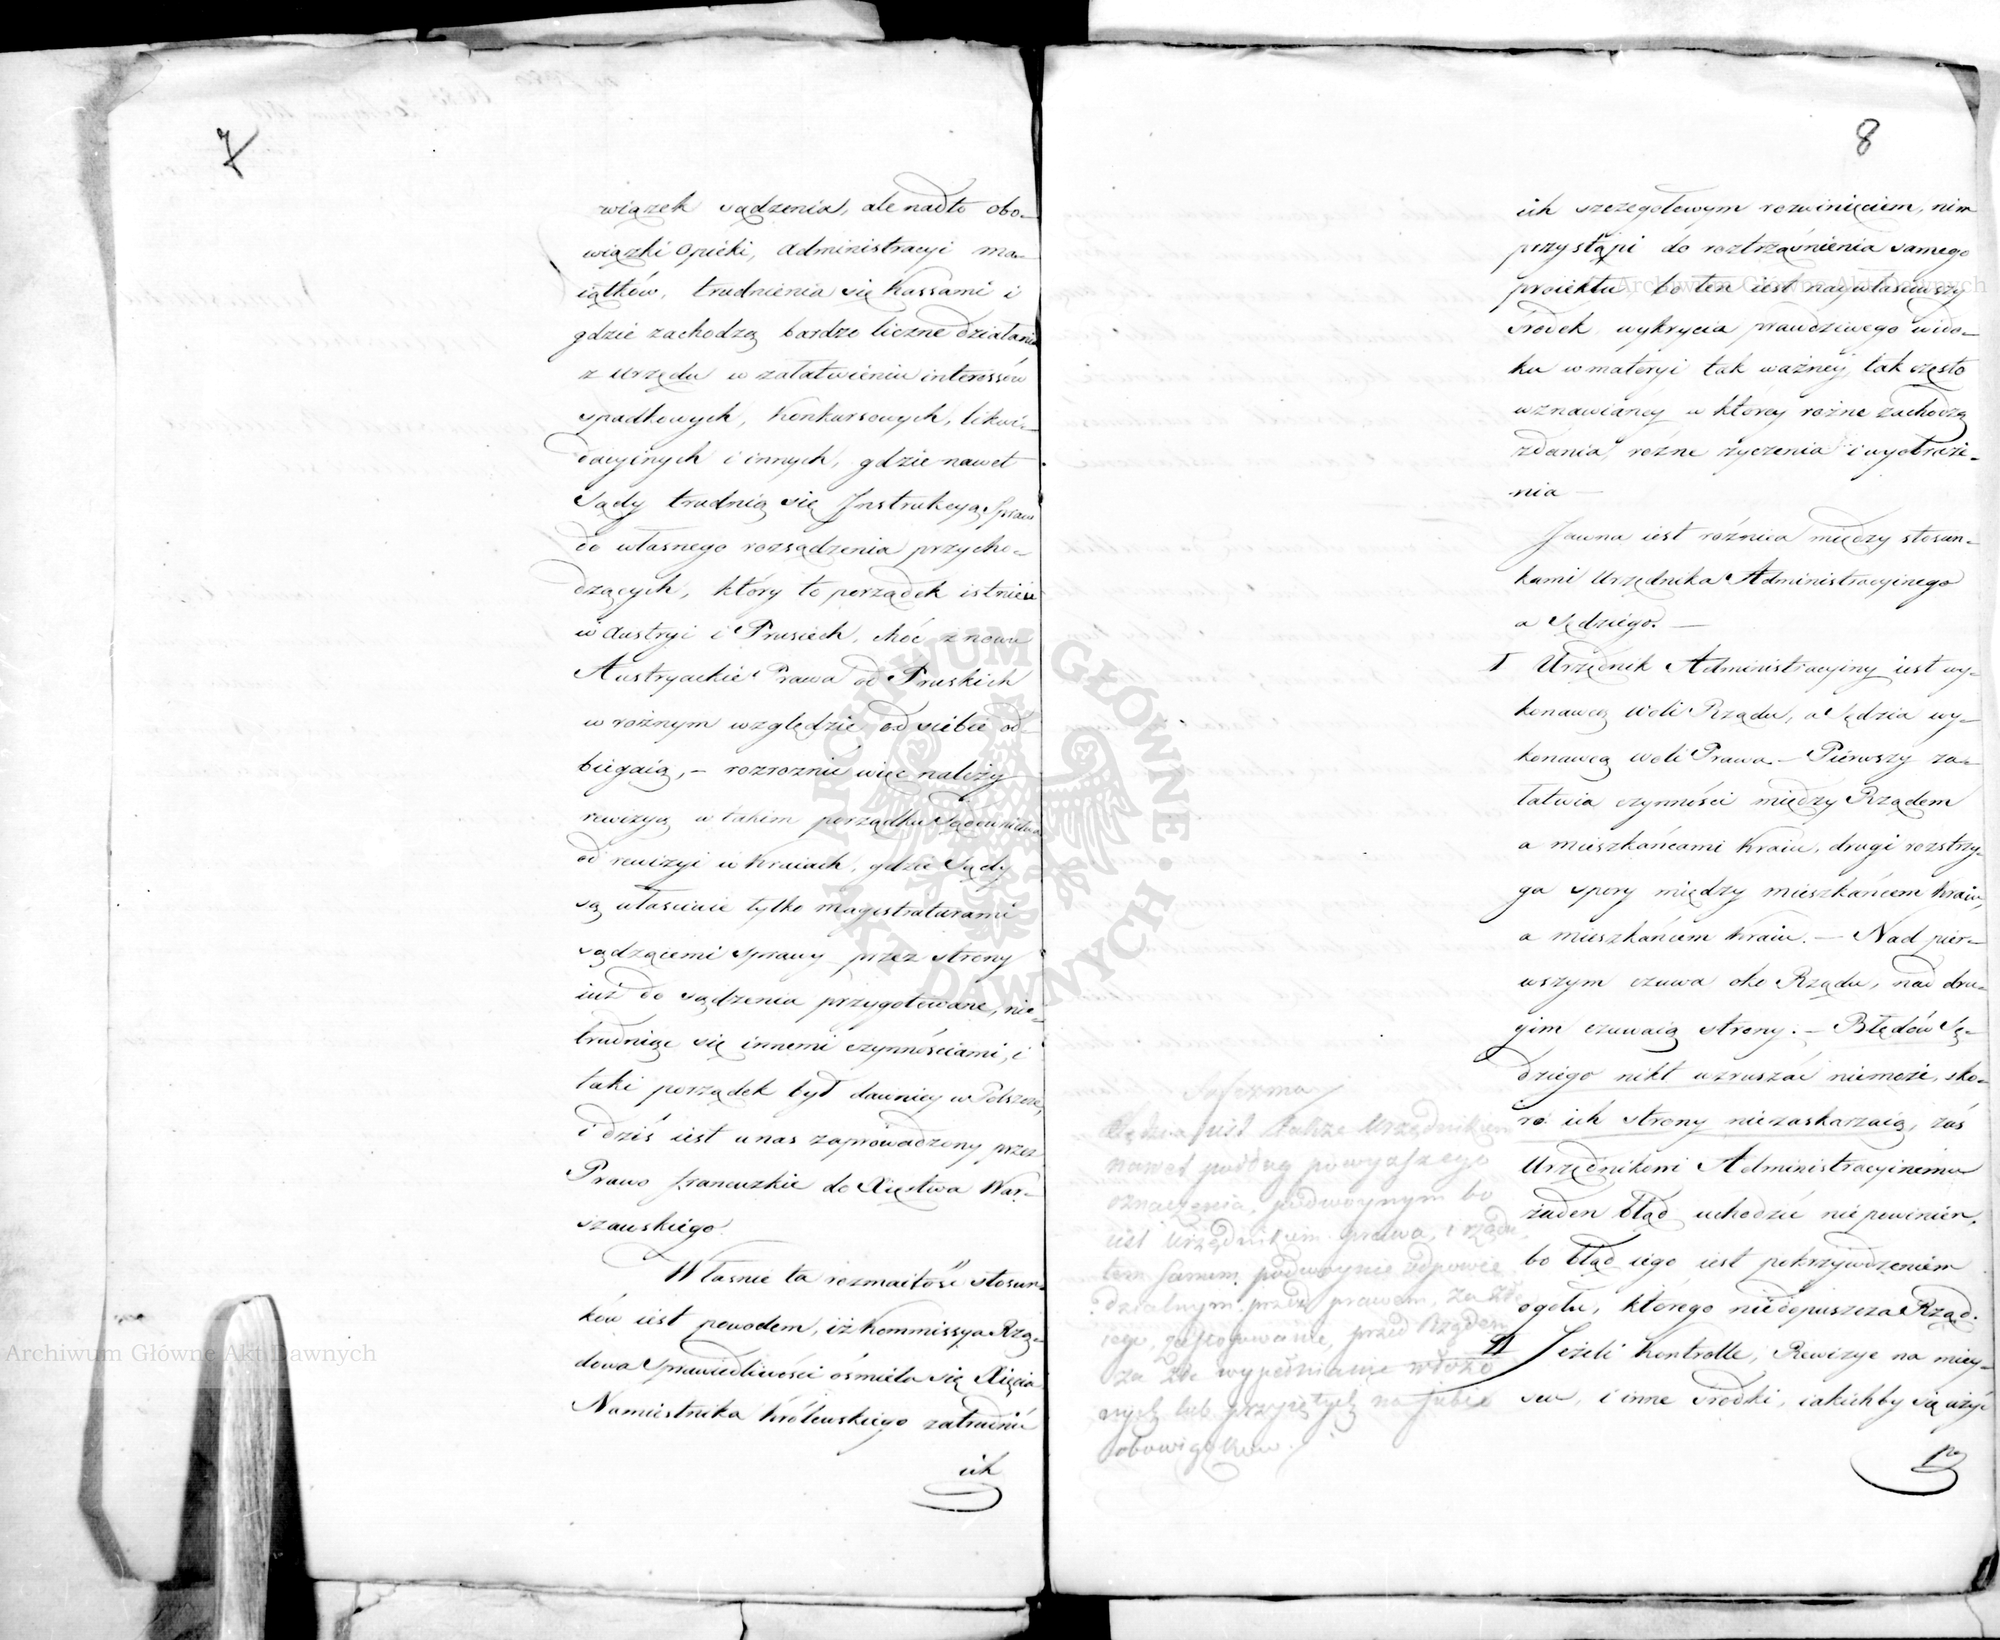 7
wiązek sądzenia, ale nadto obo-
wiązki opieki, administracyi ma-
iątków, trudnienia się kassami i
gdzie zachodzą bardzo liczne działania
z urzędu w załatwieniu interessów
spadkowych, konkursowych, likwi-
dacyinych i innych, gdzie nawet
Sądy trudnią się Instrukcyą Spraw
do własnego rozsądzenia przycho-
dzących, który to porządek istnieie
w Austryi i Prusiech, choć znowu
Austryackie Prawa od Pruskich
w rożnym względzie od siebie od-
biegaią, – rozroznić więc należy
rewizyą w takim porządku Sądownictwa
od rewizyi w kraiach, gdzie Sądy
są właściwie tylko magistraturami
sądzącemi sprawy przez strony
iuż do sądzenia przygotowane, nie-
trudniąc się innemi czynnościami, i
taki porządek był dawniey w Polszcze,
i dziś iest u nas zaprowadzony przez
Prawo francuzkie do Xięstwa War-
szawskiego.
Własnie ta rozmaitość stosun-
ków iest powodem, iż Kommissya Rzą-
dowa Sprawiedliwości ośmiela się Xięcia
Namiestnika Królewskiego zatrudnić
ich
8
ich szczegołowym rozwinięciem, nim
przystąpi do roztrząśnienia samego
proiektu, bo ten iest naywłaściwszy
środek wykrycia prawdziwego wido-
ku w materyi tak ważney, tak często
wznawianey w ktorey rożne zachodzą
zdania, rozne życzenia i wyobraże-
nia —
Jawna iest różnica między stosun-
kami Urzędnika Administracyinego
a Sędziego. —
I Urzędnik Administracyiny iest wy-
konawcą Woli Rządu, a Sędzia wy-
konawcą Woli Prawa. – Pierwszy za-
łatwia czynności między Rządem
a mieszkańcami Kraiu, drugi rozstrzy-
ga spory między mieszkańcem kraiu,
a mieszkańcem kraiu. – Nad pier-
wszym czuwa oko Rządu, nad dru-
gim czuwaią strony. – Błędów Sę-
dziego nikt wzruszać niemoże, sko-
ro ich strony niezaskarzaią, zaś
Urzędnikowi Administracyinemu
żaden błąd uchodzić niepowinien,
bo błąd iego iest pokrzywdzeniem
ogołu, ktorego niedopuszcza Rząd.
II Jeżeli kontrolle, Rewizye na miey-
scu, i inne środki, iakichby się użyć
Sędzia jest także Urzędnikiem
nawet podług powyższego
oznaczenia, podwoynym bo
iest Urzędnikiem prawa, i rządu,
tem samem podwoynie odpowie
dzialnym przed prawem, za złe
iego zastosowanie, przed Rządem
za złe wypełnianie włożo
nych lub przyiętych na siebie
obowiązkow.
Archiwum Główne Akt Dawnych
Archiwum Główne Akt Dawnych
ARCHIWUM GŁÓWNE • AKT DAWNYCH •